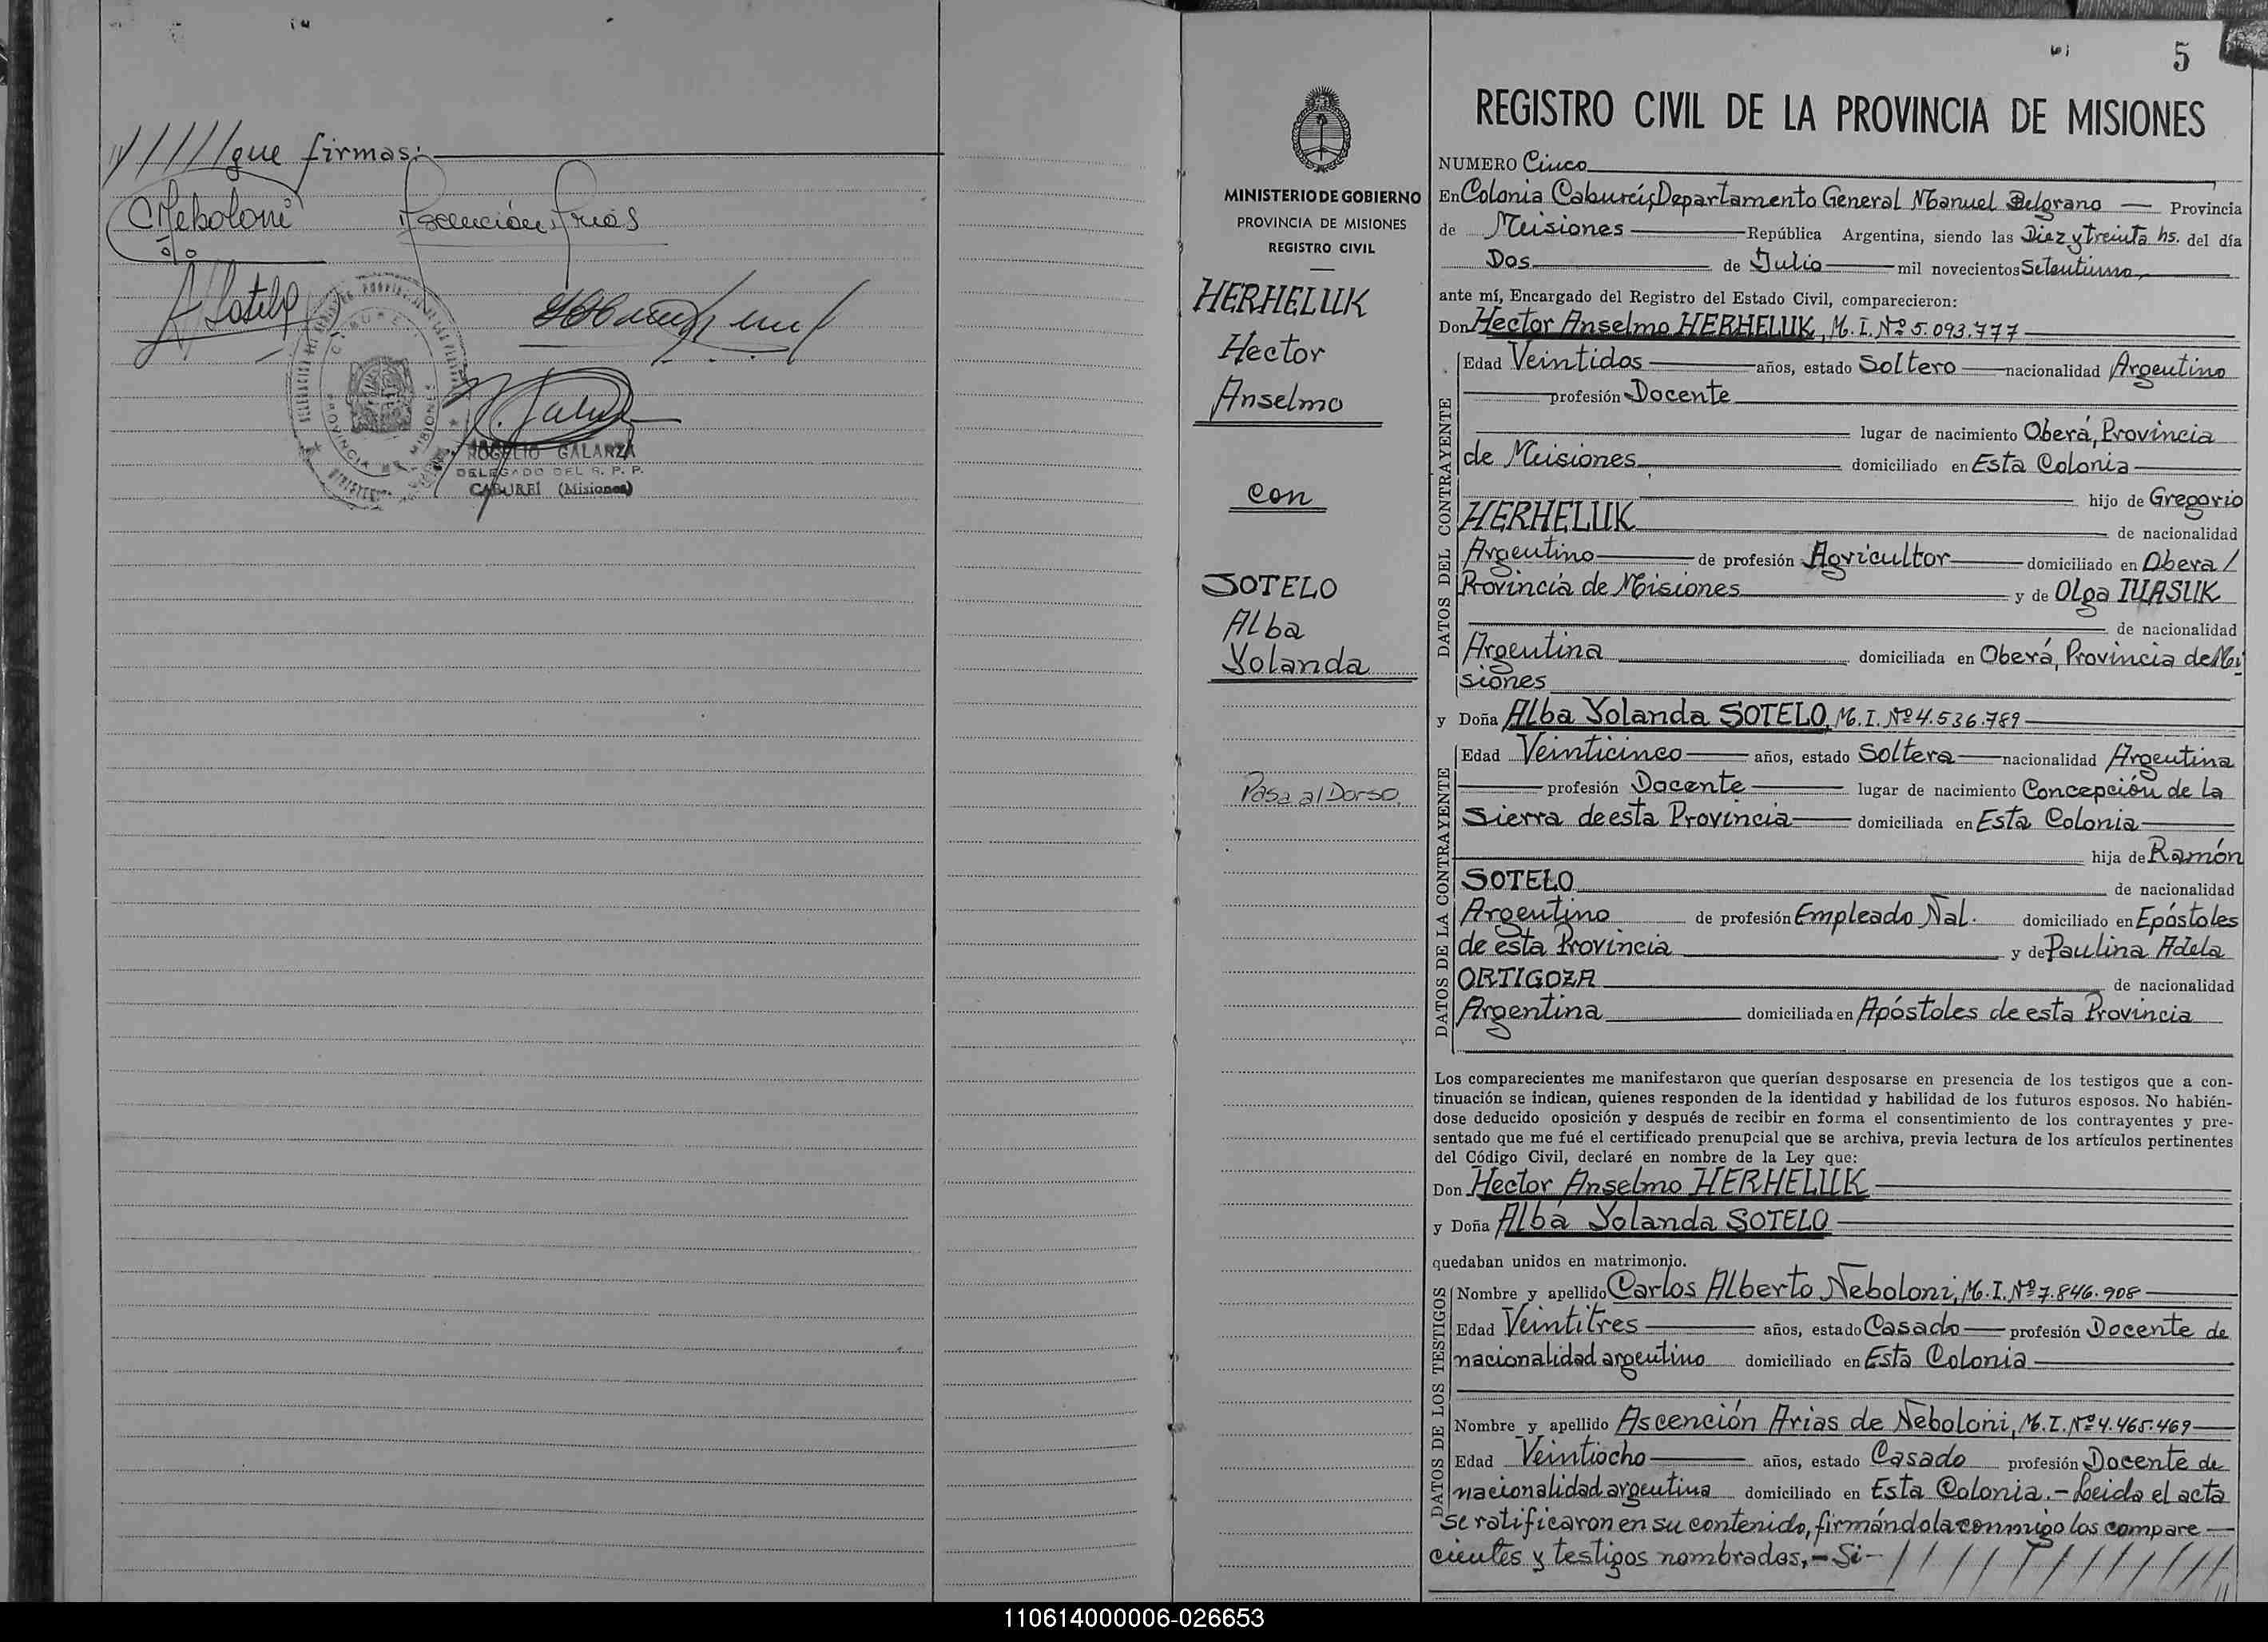 /////gue firmas:
CNeboloni
Ascención Arias
ASotelo
ROGELIO GALARZA
DELEGADO DEL R. P. P.
CABUREÍ (Misiones)
PROVINCIA DE MISIONES
5
MINISTERIO DE GOBIERNO
PROVINCIA DE MISIONES
REGISTRO CIVIL
HERHELUK
Hector
Anselmo
con
SOTELO
Alba
Yolanda
Pasa al Dorso.
REGISTRO CIVIL DE LA PROVINCIA DE MISIONES
NUMERO Cinco
En Colonia Cabureí, Departamento General Manuel Belgrano — Provincia
de Misiones — República Argentina, siendo las Diez y treinta hs. del día
Dos — de Julio — mil novecientos Setentiuno,
ante mí, Encargado del Registro del Estado Civil, comparecieron:
Don Hector Anselmo HERHELUK, M. I. Nº 5.093.777
DATOS DEL CONTRAYENTE
Edad Veintidos — años, estado Soltero — nacionalidad Argentino
profesión Docente
lugar de nacimiento Oberá, Provincia
de Misiones domiciliado en Esta Colonia
hijo de Gregorio
HERHELUK de nacionalidad
Argentino — de profesión Agricultor — domiciliado en Obera /
Provincia de Misiones y de Olga IUASUK
de nacionalidad
Argentina domiciliada en Oberá, Provincia de Mi
siones
y Doña Alba Yolanda SOTELO, M. I. Nº 4.536.789
DATOS DE LA CONTRAYENTE
Edad Veinticinco — años, estado Soltera — nacionalidad Argentina
profesión Docente — lugar de nacimiento Concepción de La
Sierra de esta Provincia — domiciliada en Esta Colonia
hija de Ramón
SOTELO de nacionalidad
Argentino de profesión Empleado Nal. domiciliado en Epóstoles
de esta Provincia y de Paulina Adela
ORTIGOZA de nacionalidad
Argentina domiciliada en Apóstoles de esta Provincia
Los comparecientes me manifestaron que querían desposarse en presencia de los testigos que a con-
tinuación se indican, quienes responden de la identidad y habilidad de los futuros esposos. No habién-
dose deducido oposición y después de recibir en forma el consentimiento de los contrayentes y pre-
sentado que me fué el certificado prenupcial que se archiva, previa lectura de los artículos pertinentes
del Código Civil, declaré en nombre de la Ley que:
Don Hector Anselmo HERHELUK
y Doña Alba Yolanda SOTELO
quedaban unidos en matrimonio.
DATOS DE LOS TESTIGOS
Nombre y apellido Carlos Alberto Neboloni, M. I. Nº 7.846.908
Edad Veintitres — años, estado Casado — profesión Docente de
nacionalidad argentino domiciliado en Esta Colonia
Nombre y apellido Ascención Arias de Neboloni, M. I. Nº 4.465.469
Edad Veintiocho — años, estado Casado profesión Docente de
nacionalidad argentina domiciliado en Esta Colonia.- Leida el acta
se ratificaron en su contenido, firmándola conmigo los compare—
cientes y testigos nombrados,- Si- / / / / / / / / / / /
110614000006-026653